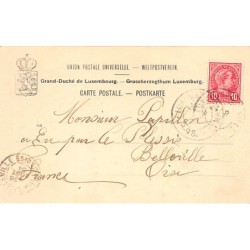 UNION POSTALE UNIVERSELLE. — WELTPOSTVEREIN.
Grand-Duché de Luxembourg. — Grossherzogthum Luxemburg.
CARTE POSTALE. — POSTKARTE
10 10
Monsieur Papillon
en par le Plessis
Belloville
Oise
France